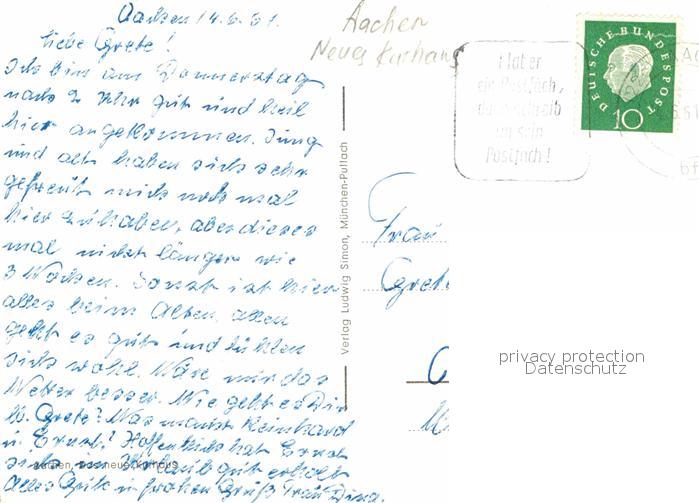 Aachen 14.6.61.
Liebe Grete!
Ich bin am Donnerstag
nach 2 Uhr gut und heil
hier angekommen. Jung
und alt haben sich sehr
gefreut mich noch mal
hier zu haben, aber dieses
mal nicht länger wie
3 Wochen. Sonst ist hier
alles beim Alten, allen
geht es gut und fühlen
sich wohl. Wäre nur das
Wetter besser. Wie geht es Dir
lb. Grete? Was macht Reinhard
u. Ernst? Hoffentlich hat Ernst
sich im Urlaub gut erholt.
Alles Gute u. frohen Gruß Frau
Aachen, Das neue Kurhaus
Aachen
Neues Kurhaus
Hat er
ein Postfach,
dann schreib
in sein
Postfach!
DEUTSCHE BUNDESPOST
10
Verlag Ludwig Simon, München-Pullach
Frau
Grete
privacy protection
Datenschutz